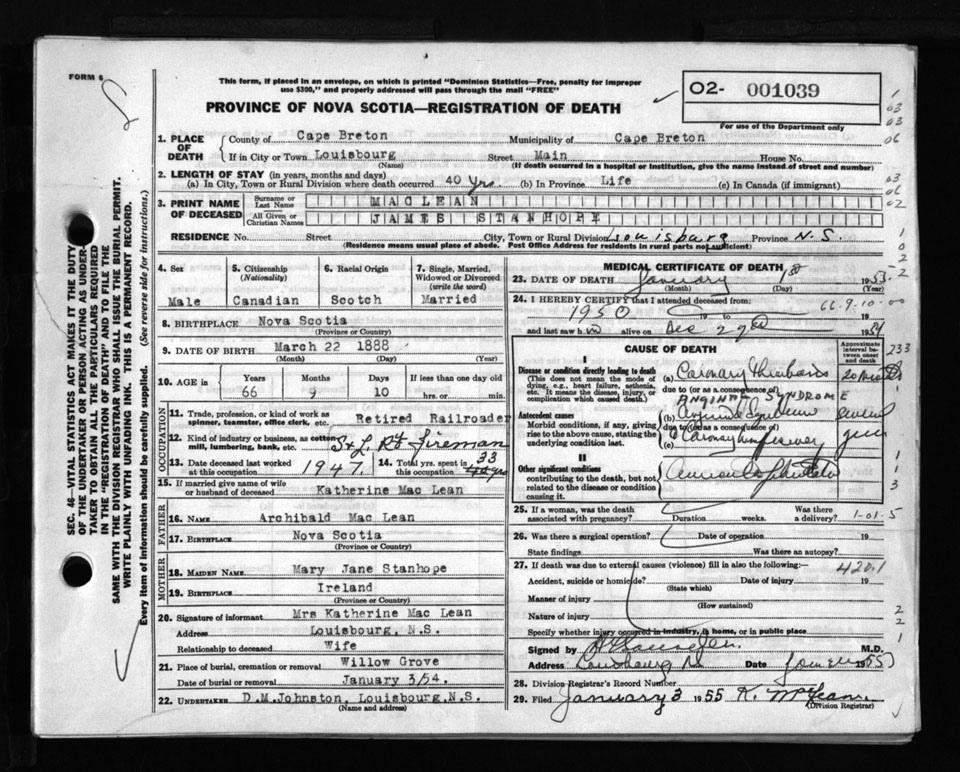 FORM 6
This form, if placed in an envelope, on which is printed "Dominion Statistics—Free, penalty for improper
use $300," and properly addressed will pass through the mail "FREE"
PROVINCE OF NOVA SCOTIA—REGISTRATION OF DEATH
O2- 001039
For use of the Department only
SEC. 46—VITAL STATISTICS ACT MAKES IT THE DUTY
OF THE UNDERTAKER OR PERSON ACTING AS UNDER-
TAKER TO OBTAIN ALL THE PARTICULARS REQUIRED
IN THE "REGISTRATION OF DEATH" AND TO FILE THE
SAME WITH THE DIVISION REGISTRAR WHO SHALL ISSUE THE BURIAL PERMIT.
WRITE PLAINLY WITH UNFADING INK. THIS IS A PERMANENT RECORD.
Every item of information should be carefully supplied. (See reverse side for instructions.)
1. PLACE OF DEATH
County of Cape Breton Municipality of Cape Breton
If in City or Town Louisbourg Street Main House No.
(Name) (If death occurred in a hospital or institution, give the name instead of street and number)
2. LENGTH OF STAY (in years, months and days)
(a) In City, Town or Rural Division where death occurred 40 Yrs. (b) In Province Life (c) In Canada (if immigrant)
3. PRINT NAME OF DECEASED
Surname or Last Name MACLEAN
All Given or Christian Names JAMES STANHOPE
RESIDENCE No. Street City, Town or Rural Division Louisburg Province N.S.
(Residence means usual place of abode. Post Office Address for residents in rural parts not sufficient)
4. Sex
Male
5. Citizenship (Nationality)
Canadian
6. Racial Origin
Scotch
7. Single, Married, Widowed or Divorced (write the word)
Married
8. BIRTHPLACE Nova Scotia
(Province or Country)
9. DATE OF BIRTH March 22 1888
(Month) (Day) (Year)
10. AGE IN Years Months Days If less than one day
66 9 10 hrs. or min.
OCCUPATION
11. Trade, profession, or kind of work as
spinner, teamster, office clerk, etc. Retired Railroader
12. Kind of industry or business, as cotton
mill, lumbering, bank, etc. S & L Ry Fireman
13. Date deceased last worked
at this occupation 1947.
14. Total yrs. spent in
this occupation 33
15. If married give name of wife
or husband of deceased Katherine Mac Lean
FATHER
16. NAME Archibald Mac Lean
17. BIRTHPLACE Nova Scotia
(Province or Country)
MOTHER
18. MAIDEN NAME Mary Jane Stanhope
19. BIRTHPLACE Ireland
(Province or Country)
20. Signature of informant Mrs Katherine Mac Lean
Address Louisbourg, N.S.
Relationship to deceased Wife
21. Place of burial, cremation or removal Willow Grove
Date of burial or removal January 3/54.
22. UNDERTAKER D.M.Johnston, Louisbourg,N.S.
(Name and address)
MEDICAL CERTIFICATE OF DEATH
23. DATE OF DEATH January 1st 1955
(Month) (Day) (Year)
24. I HEREBY CERTIFY that I attended deceased from: 66.9.10-00
1950 19
and last saw him alive on Dec 29th 1954
CAUSE OF DEATH
Approximate interval between onset and death
233
I
Disease or condition directly leading to death
(This does not mean the mode of
dying, e.g., heart failure, asthenia,
etc. It means the disease, injury, or
complication which caused death.)
(a) Coronary thrombosis
due to (or as a consequence of)
ANGINAL SYNDROME
Antecedent causes
Morbid conditions, if any, giving
rise to the above cause, stating the
underlying condition last.
(b) Anginal Syndrome
due to (or as a consequence of)
(c) Coronary insufficiency
II
Other significant conditions
contributing to the death, but not
related to the disease or condition
causing it.
25. If a woman, was the death
associated with pregnancy? Duration weeks. Was there
a delivery? 1-01-5
26. Was there a surgical operation? Date of operation 19
State findings Was there an autopsy?
27. If death was due to external causes (violence) fill in also the following: 420.1
Accident, suicide or homicide? Date of injury 19
(State which)
Manner of injury
(How sustained)
Nature of injury
Specify whether injury occurred in industry, in home, or in public place
Signed by M.D.
Address Louisbourg NS Date 1955
28. Division Registrar's Record Number
29. Filed January 3 1955 K. McLean
(Division Registrar)